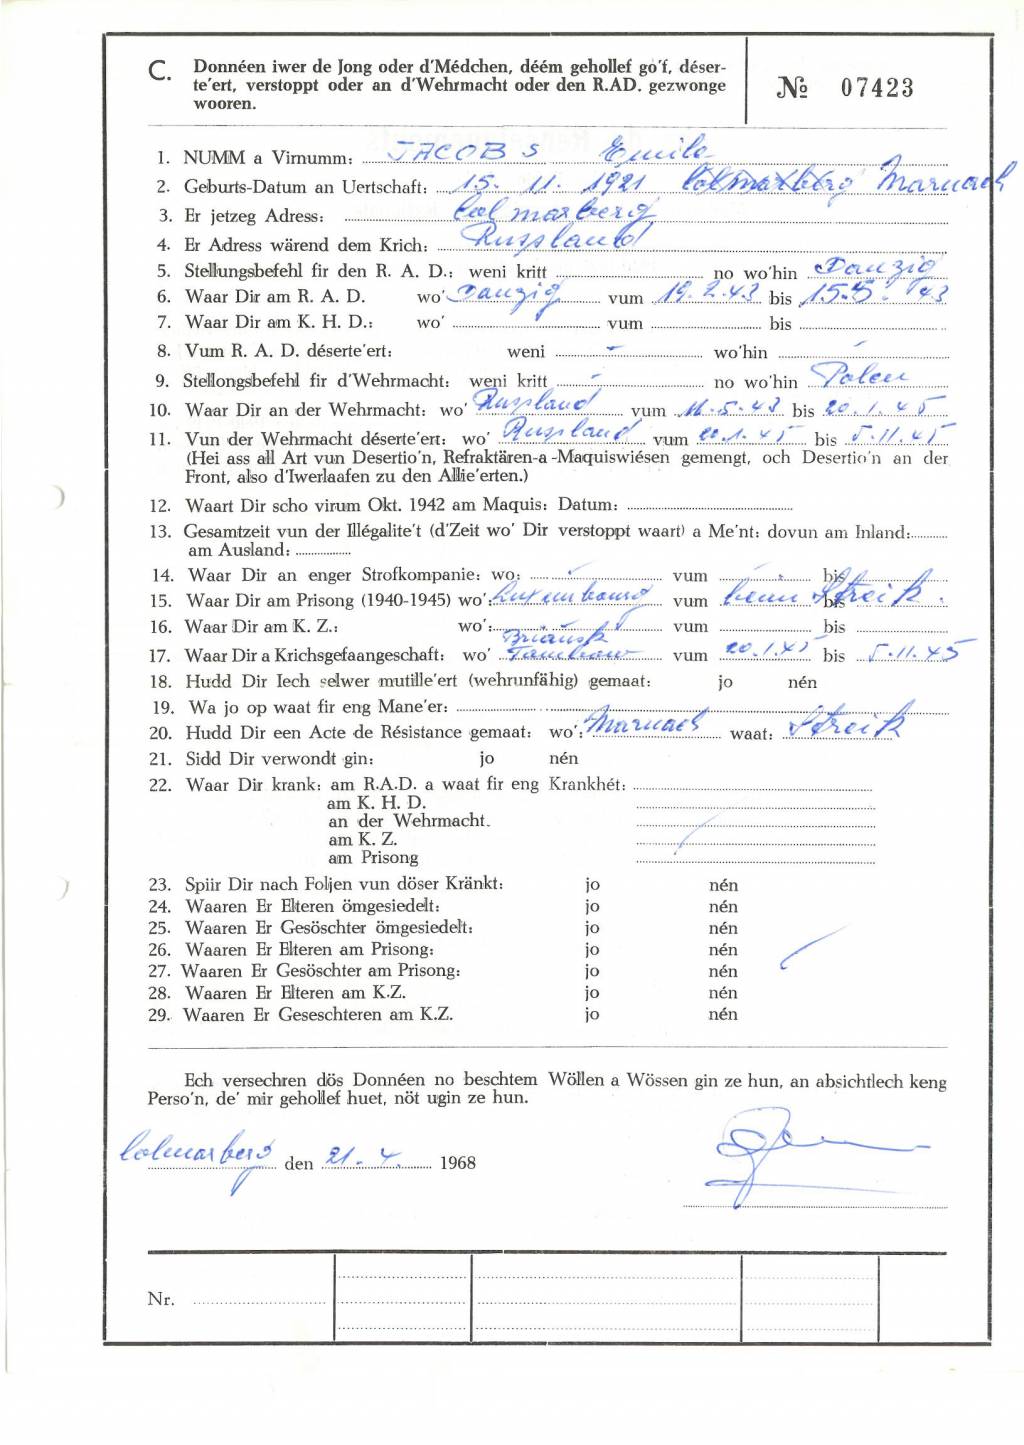 C. Donnéen iwer de Jong oder d'Médchen, déém gehollef go'f, déser-
te'ert, verstoppt oder an d'Wehrmacht oder den R.AD. gezwonge
wooren.
№ 07423
1. NUMM a Virnumm: JACOBS Emile
2. Geburts-Datum an Uertschaft: 15. 11. 1921 Colmarberg Marnach
3. Er jetzeg Adress: Colmarberg
4. Er Adress wärend dem Krich: Russland
5. Stellungsbefehl fir den R. A. D.: weni kritt no wo'hin Danzig
6. Waar Dir am R. A. D. wo' Danzig vum 19.2.43 bis 15.5. 43
7. Waar Dir am K. H. D.: wo' vum bis
8. Vum R. A. D. déserte'ert: weni - wo'hin -
9. Stellongsbefehl fir d'Wehrmacht: weni kritt - no wo'hin Polen
10. Waar Dir an der Wehrmacht: wo' Russland vum 16.5.43 bis 20.1.45
11. Vun der Wehrmacht déserte'ert: wo' Russland vum 20.1.45 bis 5.11.45
(Hei ass all Art vun Desertio'n, Refraktären-a-Maquiswiésen gemengt, och Desertio'n an der
Front, also d'Iwerlaafen zu den Allie'erten.)
12. Waart Dir scho virum Okt. 1942 am Maquis: Datum:
13. Gesamtzeit vun der Illégalite't (d'Zeit wo' Dir verstoppt waart) a Me'nt: dovun am Inland:
am Ausland:
14. Waar Dir an enger Strofkompanie: wo: - vum - bis
15. Waar Dir am Prisong (1940-1945) wo': Luxembourg vum beim Streik. bis
16. Waar Dir am K. Z.: wo': vum bis
Briansk
17. Waar Dir a Krichsgefaangeschaft: wo' Tambow vum 20.1.45 bis 5.11.45
18. Hudd Dir Iech selwer mutille'ert (wehrunfähig) gemaat: jo nén
19. Wa jo op waat fir eng Mane'er:
20. Hudd Dir een Acte de Résistance gemaat: wo': Marnach waat: Streik
21. Sidd Dir verwondt gin: jo nén
22. Waar Dir krank: am R.A.D. a waat fir eng Krankhét:
am K. H. D.
an der Wehrmacht.
am K. Z.
am Prisong
23. Spiir Dir nach Foljen vun döser Kränkt: jo nén
24. Waaren Er Elteren ömgesiedelt: jo nén
25. Waaren Er Gesöschter ömgesiedelt: jo nén
26. Waaren Er Elteren am Prisong: jo nén
27. Waaren Er Gesöschter am Prisong: jo nén
28. Waaren Er Elteren am K.Z. jo nén
29. Waaren Er Geseschteren am K.Z. jo nén
Ech versechren dös Donnéen no beschtem Wöllen a Wössen gin ze hun, an absichtlech keng
Perso'n, de' mir gehollef huet, nöt ugin ze hun.
Colmarberg den 21. 4. 1968
Nr.